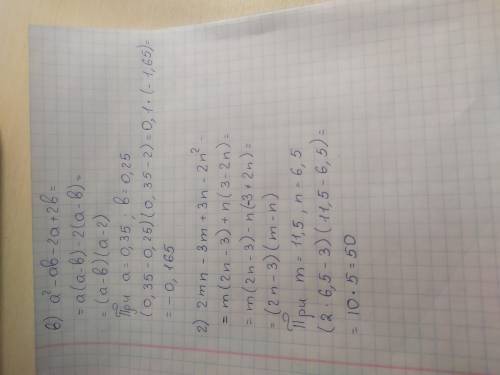 в) a² - ab - 2a + 2b =
= a(a-b) - 2(a-b) =
= (a-b)(a-2)
При a = 0,35; b = 0,25
(0,35-0,25)(0,35-2) = 0,1 · (-1,65) =
= -0,165
г) 2mn - 3m + 3n - 2n² =
= m(2n-3) + n(3-2n) =
= m(2n-3) - n(-3+2n) =
= (2n-3)(m-n)
При m = 11,5, n = 6,5
(2 · 6,5-3)(11,5-6,5) =
= 10 · 5 = 50